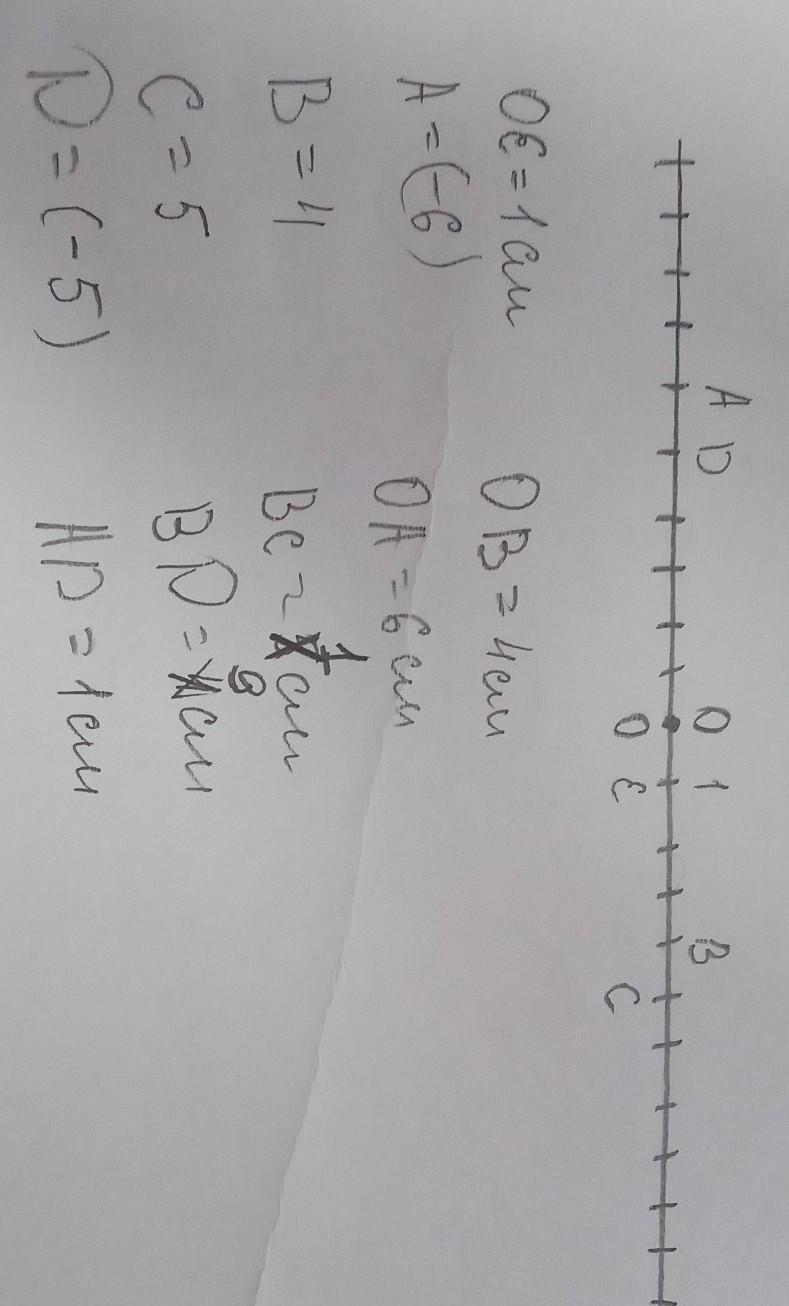 A D O 1 B
O E C
OE = 1 см
A = (-6)
B = 4
C = 5
D = (-5)
OB = 4 см
OA = 6 см
BC = 1 см
BD = 9 см
AD = 1 см